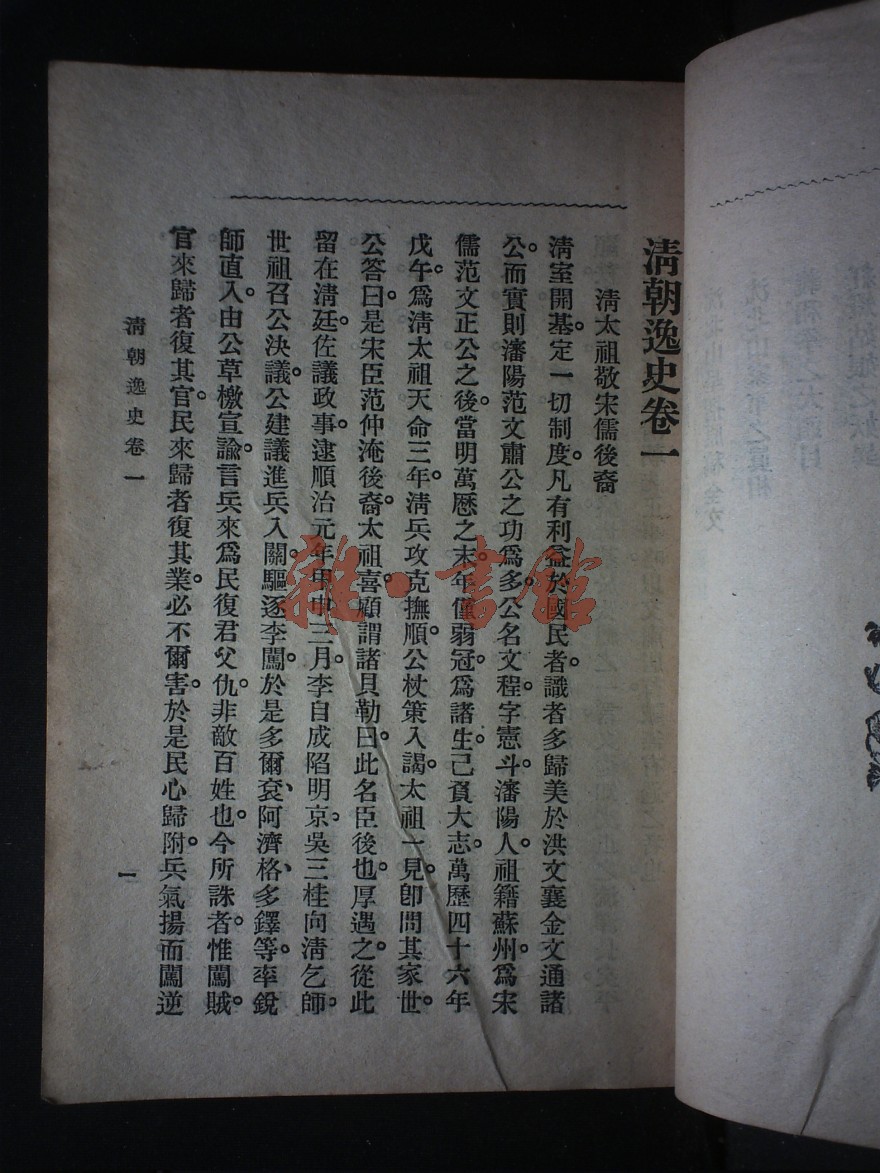 清朝逸史卷一
清太祖敬宋儒後裔
清室開基。定一切制度。凡有利益於國民者。識者多歸美於洪文襄金文通諸
公。而實則瀋陽范文肅公之功爲多。公名文程。字憲斗。瀋陽人。祖籍蘇州。爲宋
儒范文正公之後。當明萬歷之末。年僅弱冠。爲諸生。已負大志。萬歷四十六年
戊午。爲清太祖天命三年。清兵攻克撫順。公杖策入謁。太祖一見。卽問其家世。
公答曰。是宋臣范仲淹後裔。太祖喜。顧謂諸貝勒曰。此名臣後也。厚遇之。從此
留在清廷。佐議政事。逮順治元年甲申三月。李自成陷明京。吳三桂向清乞師。
世祖召公決議。公建議進兵入關。驅逐李闖。於是多爾袞、阿濟格、多鐸等。率銳
師直入。由公草檄宣諭。言兵來爲民復君父仇。非敵百姓也。今所誅者。惟闖賊。
官來歸者復其官。民來歸者復其業。必不爾害。於是民心歸附。兵氣揚而闖逆
清朝逸史卷一
一
雜·書館